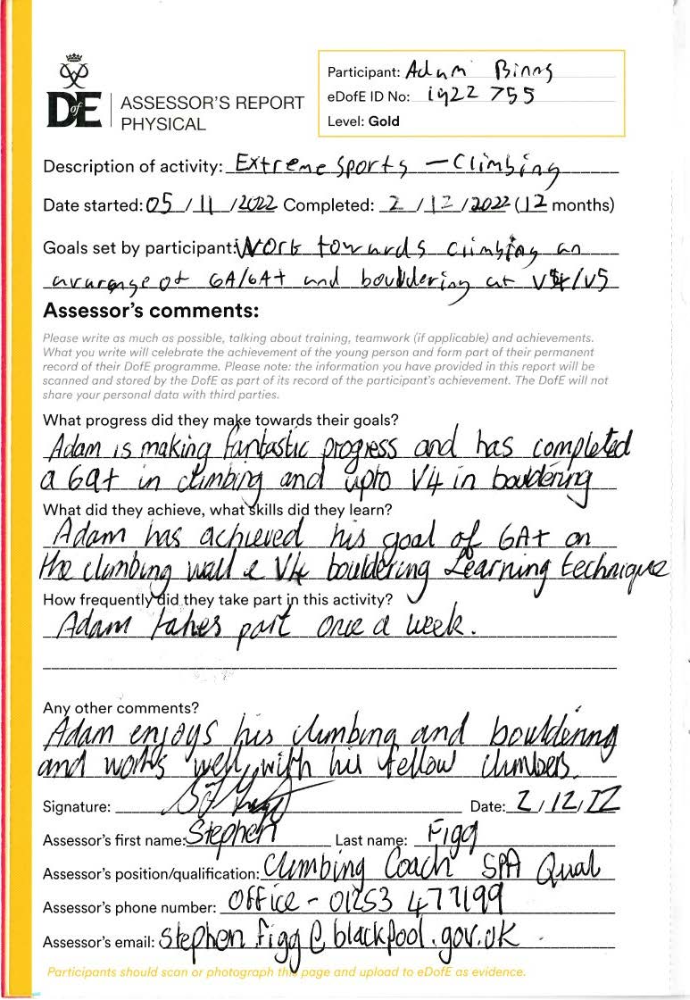 DofE
ASSESSOR'S REPORT
PHYSICAL
Participant: Adam Binns
eDofE ID No: 1922 755
Level: Gold
Description of activity: Extreme sports – Climbing
Date started: 05 / 11 / 2022 Completed: 2 / 12 / 2022 (12 months)
Goals set by participant: Work towards climbing an
avarange of 6A/6A+ and bouldering at V4/V5
Assessor's comments:
Please write as much as possible, talking about training, teamwork (if applicable) and achievements.
What you write will celebrate the achievement of the young person and form part of their permanent
record of their DofE programme. Please note: the information you have provided in this report will be
scanned and stored by the DofE as part of its record of the participant's achievement. The DofE will not
share your personal data with third parties.
What progress did they make towards their goals?
Adam is making fantastic progress and has completed
a 6a+ in climbing and upto V4 in bouldering
What did they achieve, what skills did they learn?
Adam has achieved his goal of 6A+ on
the climbing wall & V4 bouldering Learning technique
How frequently did they take part in this activity?
Adam takes part once a week.
Any other comments?
Adam enjoys his climbing and bouldering
and works well with his fellow climbers.
Signature: Date: 2/12/22
Assessor's first name: Stephen Last name: Figg
Assessor's position/qualification: Climbing Coach SPA Qual
Assessor's phone number: Office - 01253 477199
Assessor's email: Stephen.figg@blackpool.gov.uk.
Participants should scan or photograph this page and upload to eDofE as evidence.